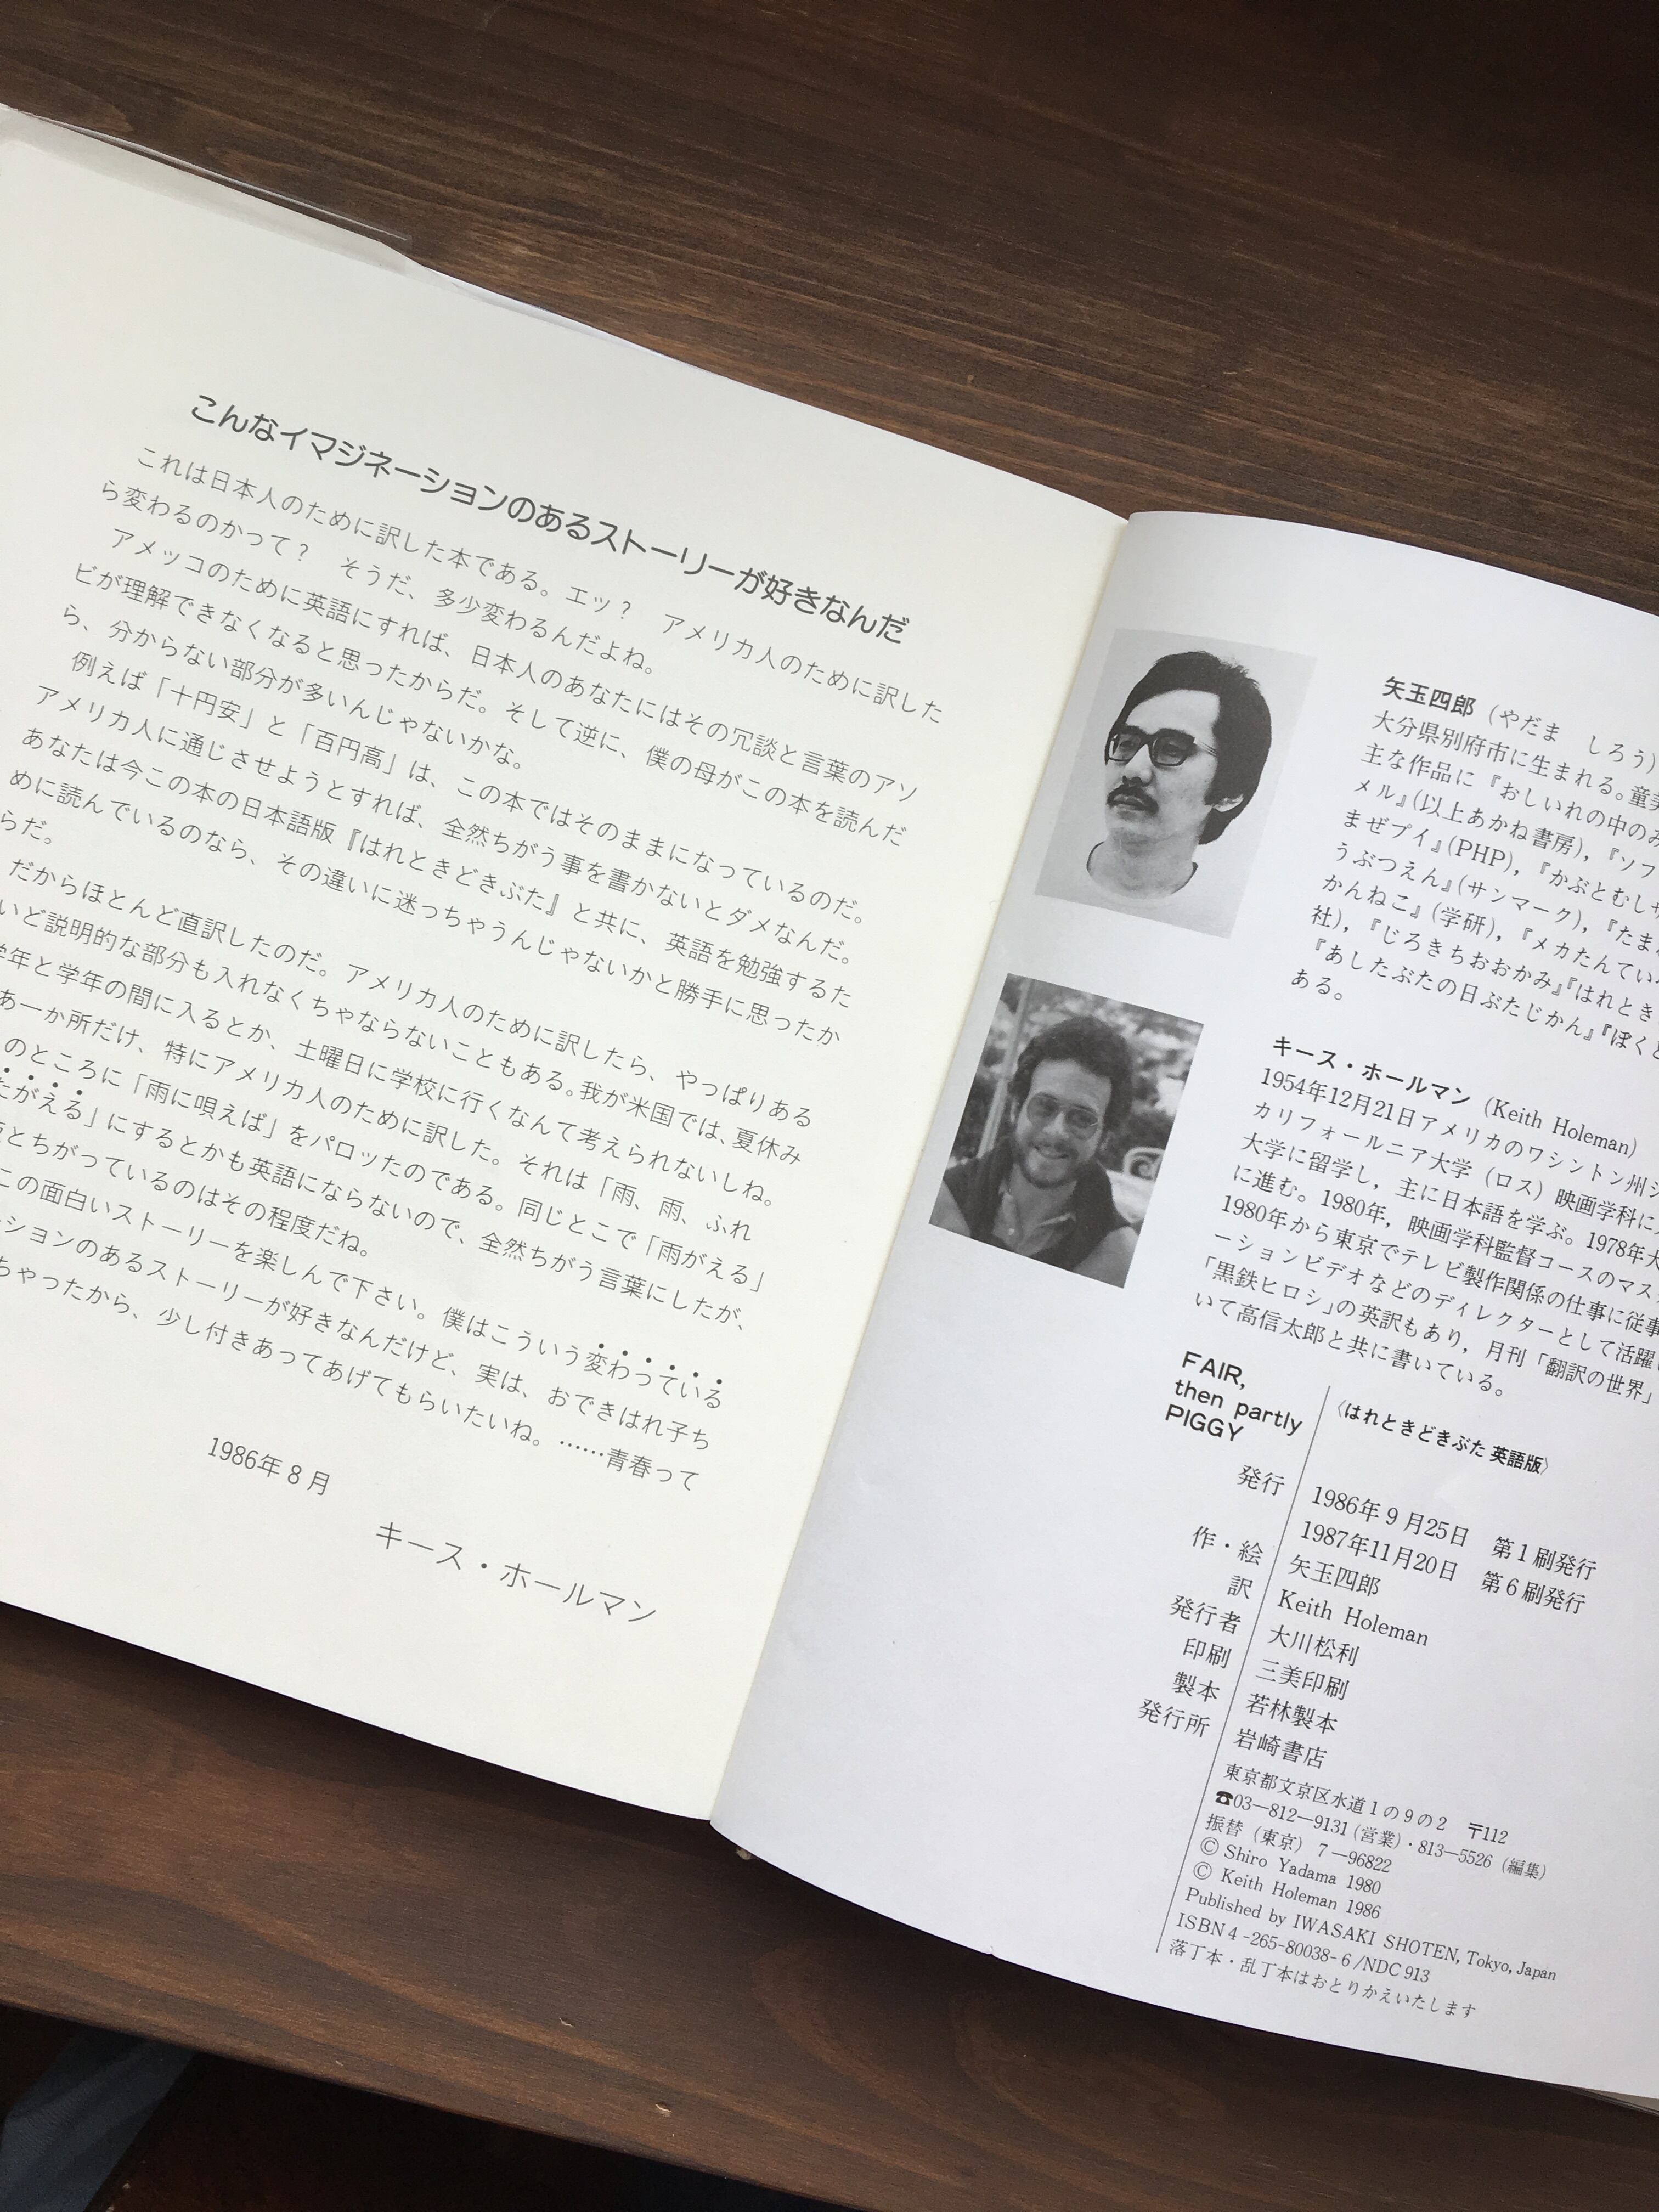 こんなイマジネーションのあるストーリーが好きなんだ
これは日本人のために訳した本である。エッ？　アメリカ人のために訳した
ら変わるのかって？　そうだ、多少変わるんだよね。
アメッコのために英語にすれば、日本人のあなたにはその冗談と言葉のアソ
ビが理解できなくなると思ったからだ。そして逆に、僕の母がこの本を読んだ
ら、分からない部分が多いんじゃないかな。
例えば「十円安」と「百円高」は、この本ではそのままになっているのだ。
アメリカ人に通じさせようとすれば、全然ちがう事を書かないとダメなんだ。
あなたは今この本の日本語版『はれときどきぶた』と共に、英語を勉強するた
めに読んでいるのなら、その違いに迷っちゃうんじゃないかと勝手に思ったか
らだ。
だからほとんど直訳したのだ。アメリカ人のために訳したら、やっぱりある
いど説明的な部分も入れなくちゃならないこともある。我が米国では、夏休み
学年と学年の間に入るとか、土曜日に学校に行くなんて考えられないしね。
あ一か所だけ、特にアメリカ人のために訳した。それは「雨、雨、ふれ
のところに「雨に唄えば」をパロッたのである。同じとこで「雨がえる」
たがえる」にするとかも英語にならないので、全然ちがう言葉にしたが、
とちがっているのはその程度だね。
この面白いストーリーを楽しんで下さい。僕はこういう変わっている
ションのあるストーリーが好きなんだけど、実は、おできはれ子ち
ちゃったから、少し付きあってあげてもらいたいね。……青春って
1986年8月
キース・ホールマン
矢玉四郎（やだま　しろう）
大分県別府市に生まれる。童
主な作品に『おしいれの中のみ
メル』(以上あかね書房)，『ソフ
まぜプイ』(PHP)，『かぶとむし
うぶつえん』(サンマーク)，『たま
かんねこ』(学研)，『メカたんてい
社)，『じろきちおおかみ』『はれとき
『あしたぶたの日ぶたじかん』『ぼくと
ある。
キース・ホールマン（Keith Holeman）
1954年12月21日アメリカのワシントン州シ
カリフォールニア大学（ロス）映画学科に
大学に留学し，主に日本語を学ぶ。1978年大
に進む。1980年，映画学科監督コースのマス
1980年から東京でテレビ製作関係の仕事に従事
ーションビデオなどのディレクターとして活躍
「黒鉄ヒロシ」の英訳もあり，月刊「翻訳の世界」
いて高信太郎と共に書いている。
FAIR,
then partly
PIGGY
〈はれときどきぶた 英語版〉
発行　1986年9月25日　第1刷発行
1987年11月20日　第6刷発行
作・絵　矢玉四郎
訳　Keith Holeman
発行者　大川松利
印刷　三美印刷
製本　若林製本
発行所　岩崎書店
東京都文京区水道1の9の2　〒112
☎03―812―9131(営業)・813―5526(編集)
振替（東京）7―96822
© Shiro Yadama 1980
© Keith Holeman 1986
Published by IWASAKI SHOTEN, Tokyo, Japan
ISBN4-265-80038-6/NDC913
落丁本・乱丁本はおとりかえいたします